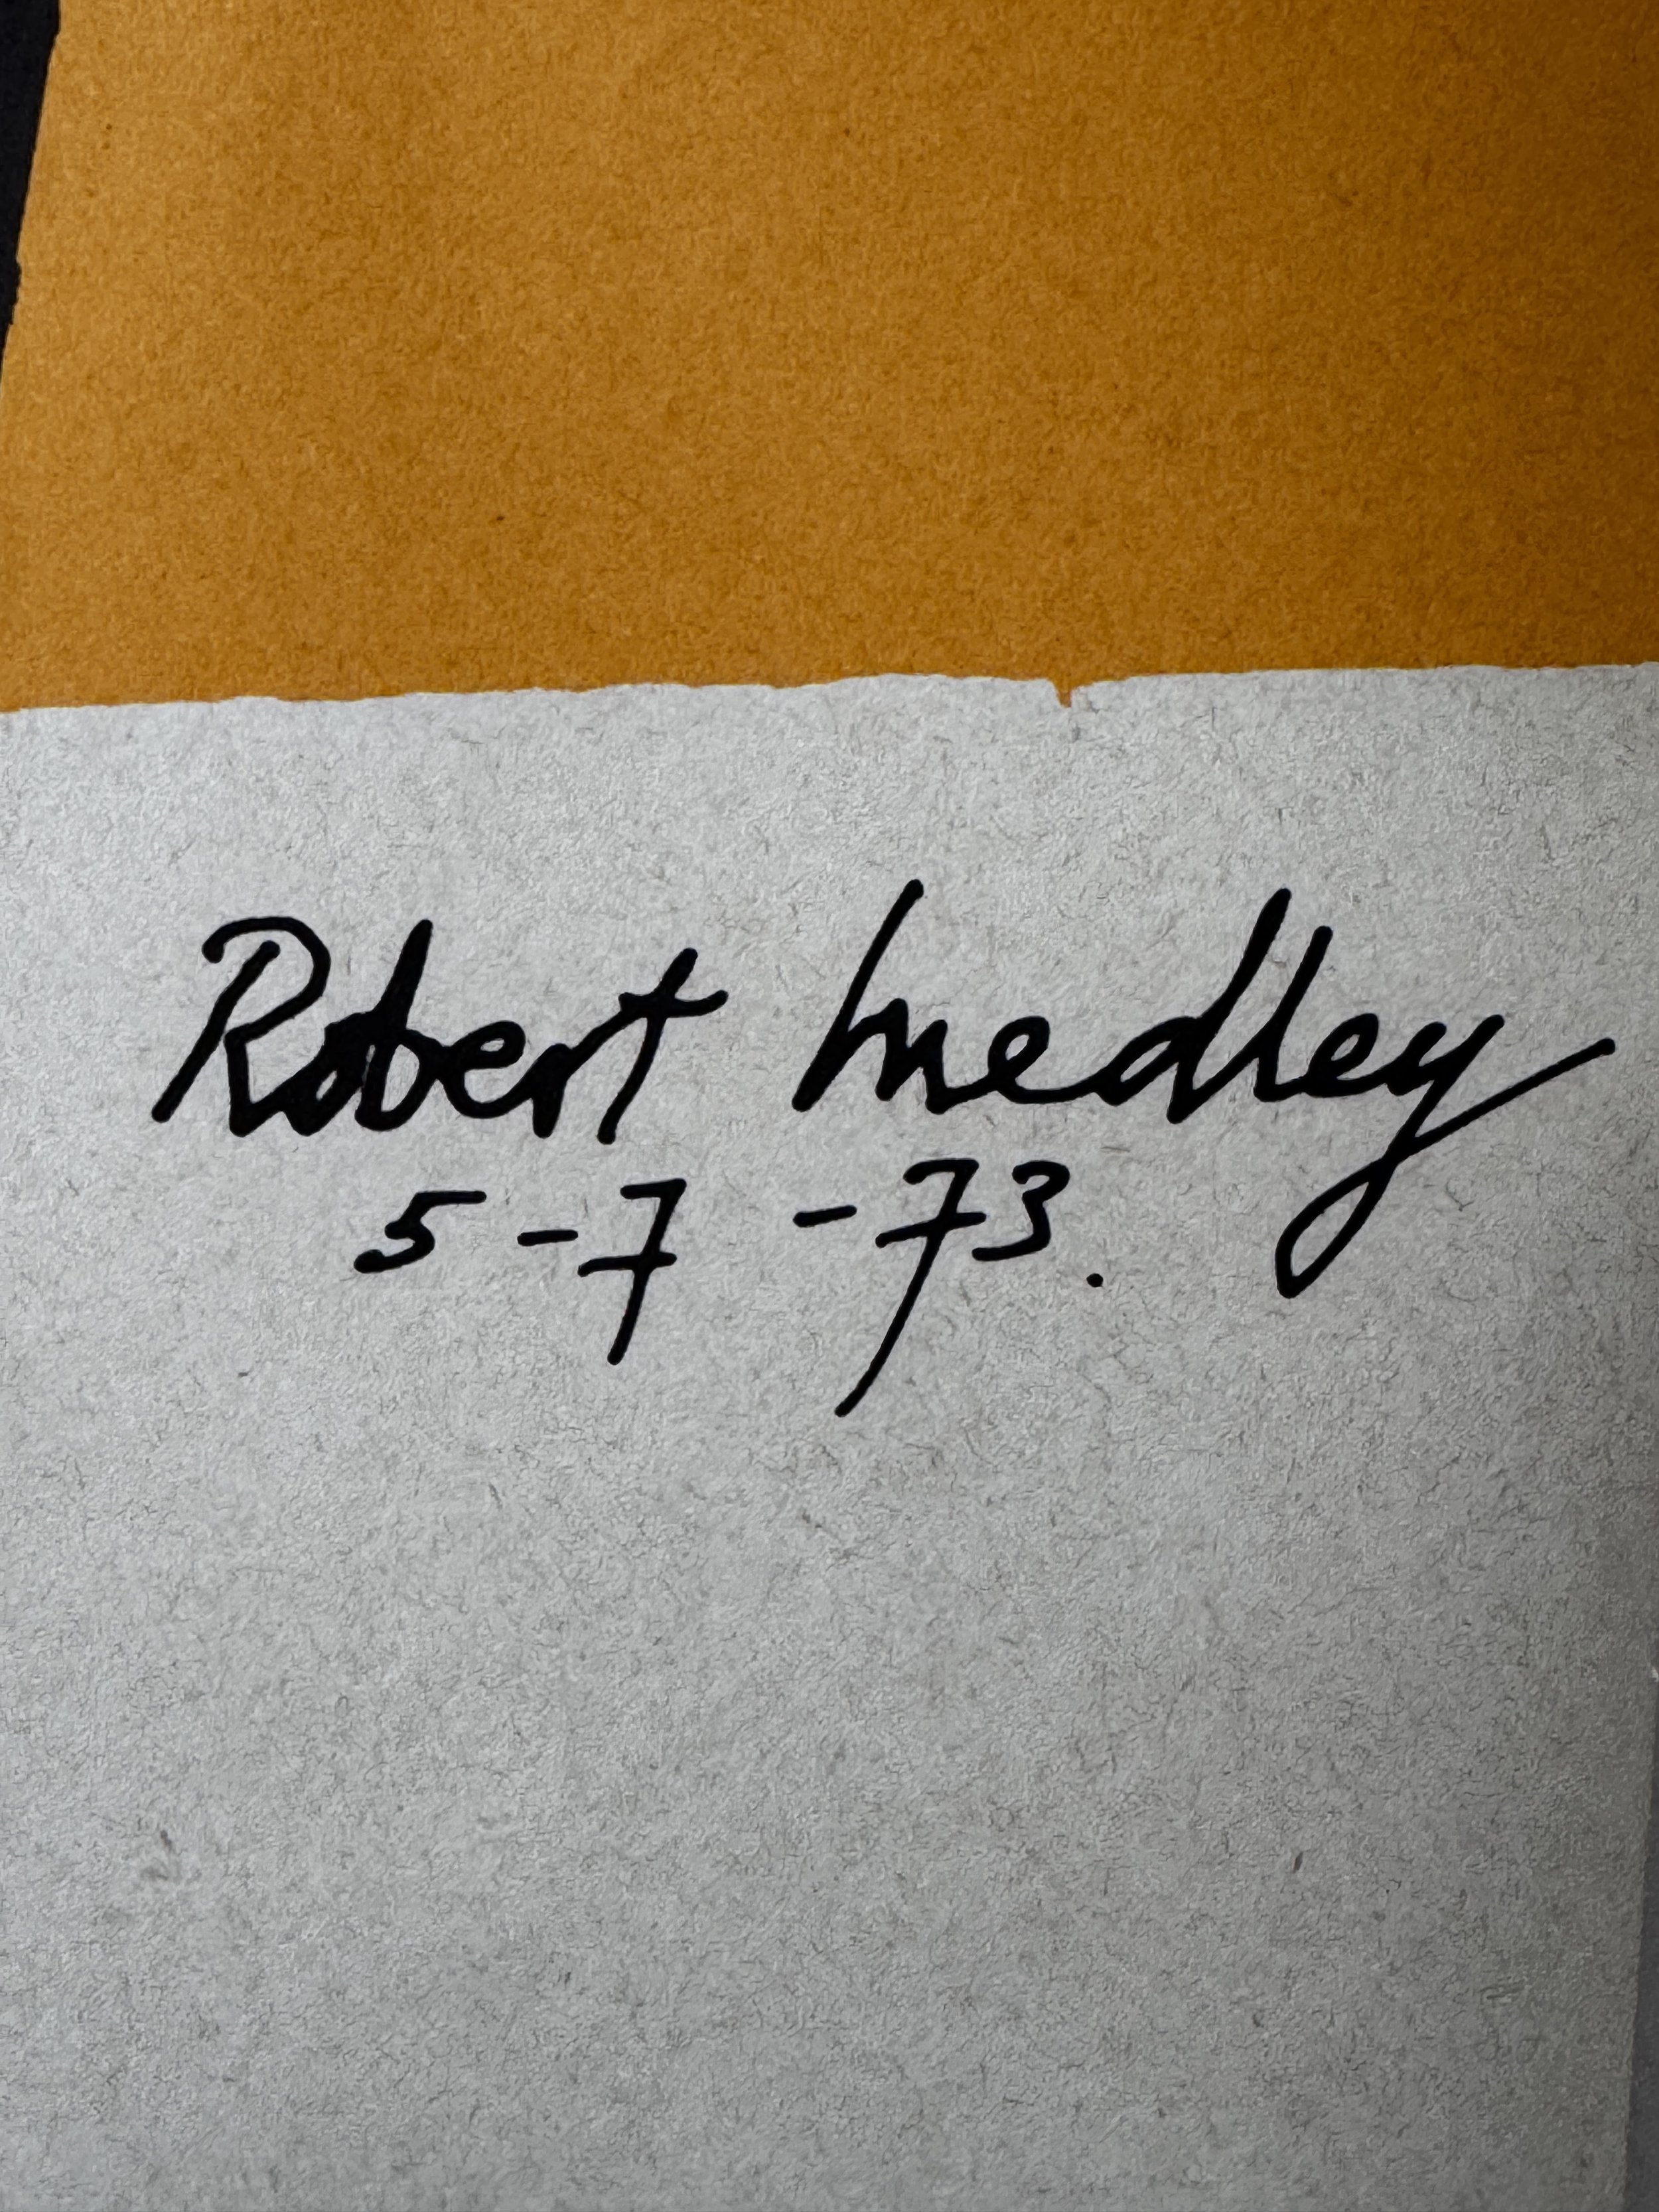 Robert Medley
5-7-73.